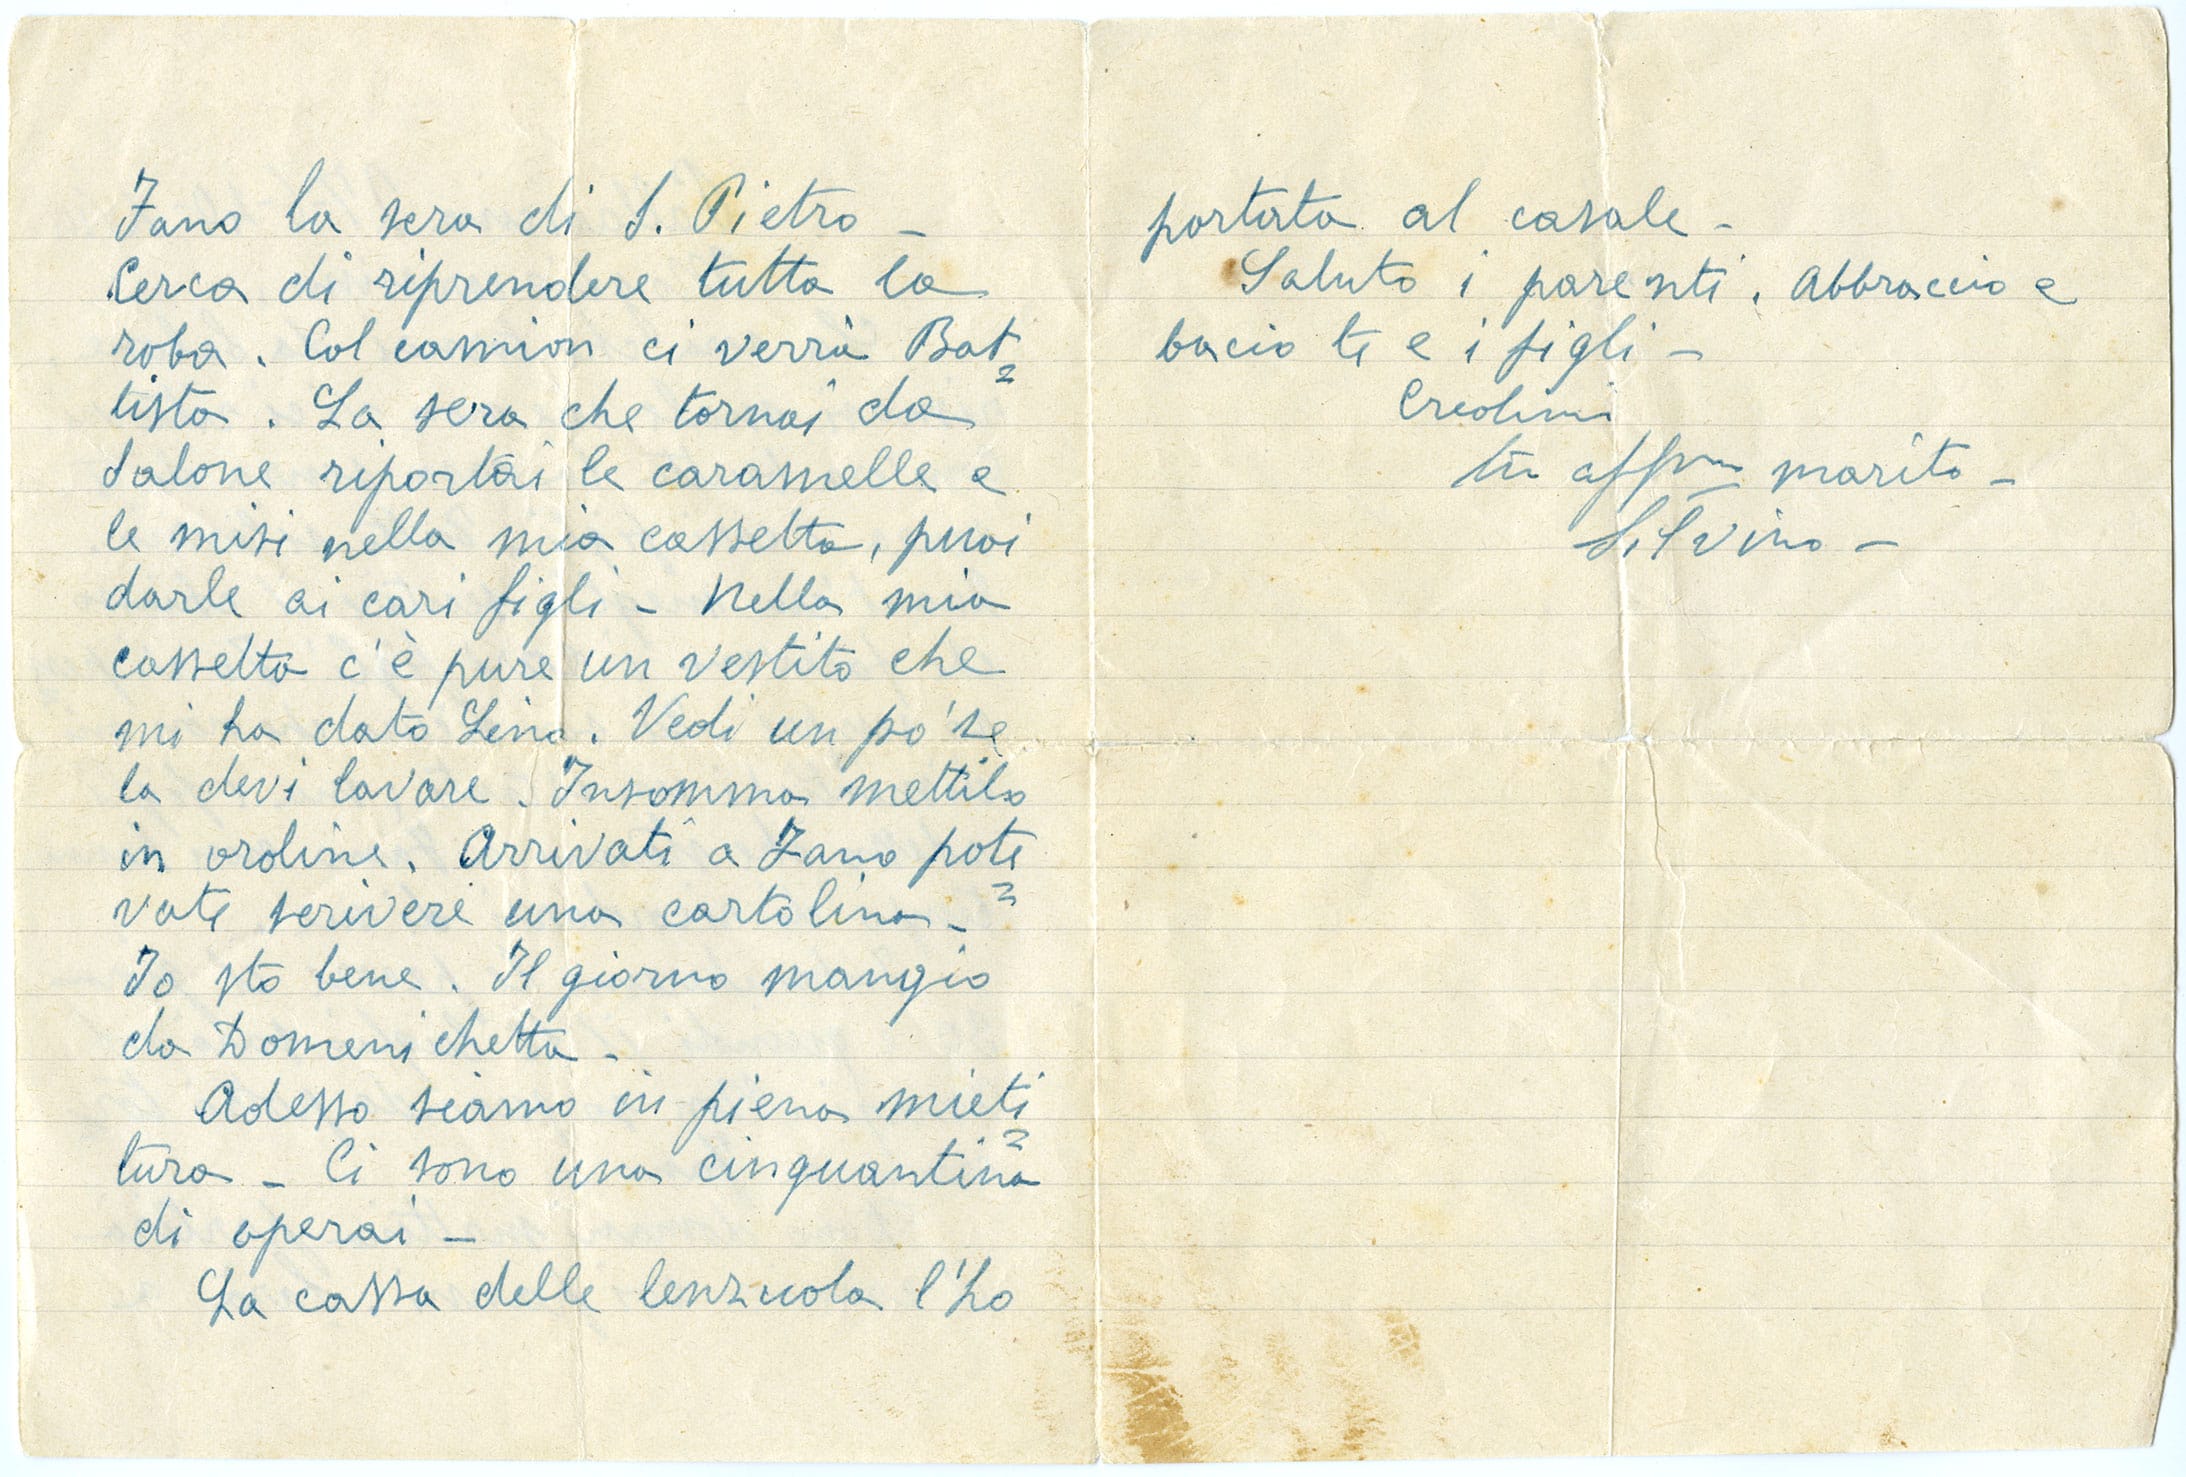 Fano la sera di S. Pietro –
Cerca di riprendere tutta la
roba. Col camion ci verrà Bat=
tista. La sera che tornai da
Salone riportai le caramelle e
le misi nella mia cassetta, puoi
darle ai cari figli – Nella mia
cassetta c'è pure un vestito che
mi ha dato Lina. Vedi un po' se
la devi lavare. Insomma mettilo
in ordine. Arrivati a Fano pote=
vate scrivere una cartolina –
Io sto bene. Il giorno mangio
da Domenichetta –
Adesso siamo in piena mieti=
tura – Ci sono una cinquantina
di operai –
La cassa delle lenzuola l'ho
portata al casale –
Saluto i parenti. Abbraccio e
bacio te e i figli –
Credimi
tuo affmo marito –
Silvino –